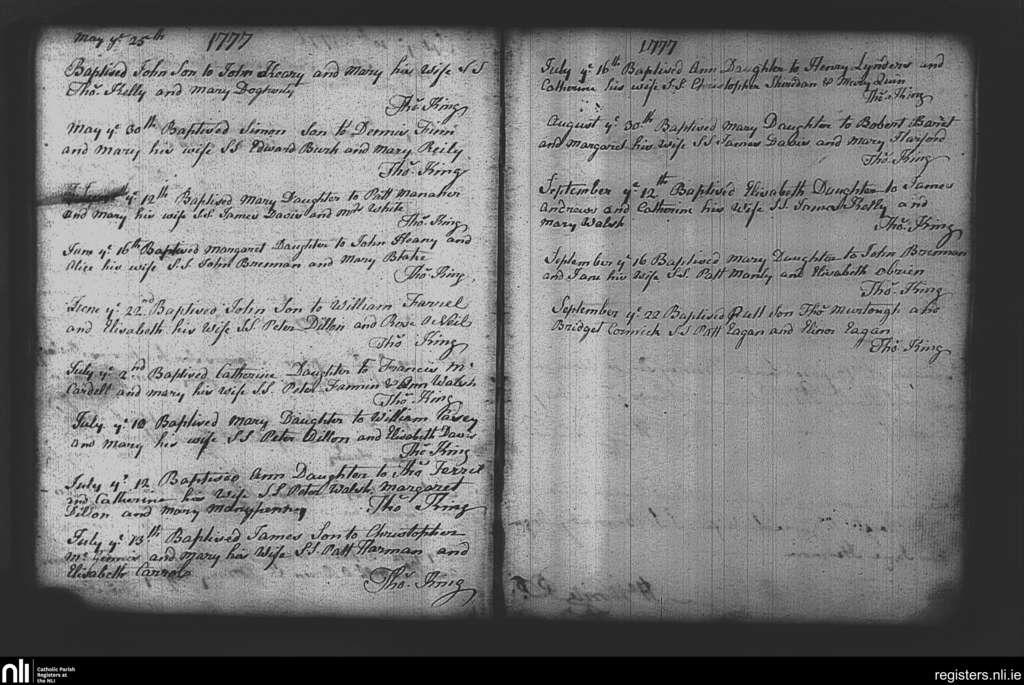 May ye 25th 1777
Baptised John Son to John Keary and Mary his Wife SS
Thos. Kelly and Mary
Thos. King
May ye 30th Baptised Simon Son to Dennis Finn
and Mary his wife SS Edward Burk and Mary Reily
Thos. King
ye 12th Baptised Mary Daughter to Patt Manaher
and Mary his wife SS James Davis and Mrs White
Thos. King
June ye 16th Baptised Margaret Daughter to John Heany and
Alice his wife SS John Brennan and Mary Blake
Thos. King
June ye 22nd Baptised John Son to William Farrel
and Elisabeth his Wife SS Peter Dillon and Rose ONeil
Thos. King
July ye 2nd Baptised Catherine Daughter to Francis Mc
Cardell and Mary his wife SS Peter Fannin & Ann Walsh
Thos. King
July ye 10 Baptised Mary Daughter to William
and Mary his wife SS Peter Dillon and Elisabeth Davis
Thos. King
July ye 12 Baptised Ann Daughter to Thos. Ferrel
and Catherine his Wife SS Peter Walsh Margaret
and Mary
Thos. King
July ye 13th Baptised James Son to Christopher
and Mary his Wife SS Patt Harman and
Elisabeth Carrol
Thos. King
1777
July ye 16th Baptised Ann Daughter to Henry Lynders and
Catherine his wife SS Christopher Sheridan & Mary Quin
Thos. King
August ye 30th Baptised Mary Daughter to Robert
and Margaret his Wife SS James Davis and Mary Harford
Thos. King
September ye 12th Baptised Elisabeth Daughter to James
Andrews and Catherine his Wife SS James Kelly and
Mary Walsh
Thos. King
September ye 16 Baptised Mary Daughter to John Brennan
and Jane his Wife SS Patt Manly and Elisabeth Obrien
Thos. King
September ye 22 Baptised Son Thos. Murtough and
Bridget Cormick SS Patt Eagan and Elinor Eagan
Thos. King
nli
Catholic Parish
Registers at
the NLI
registers.nli.ie